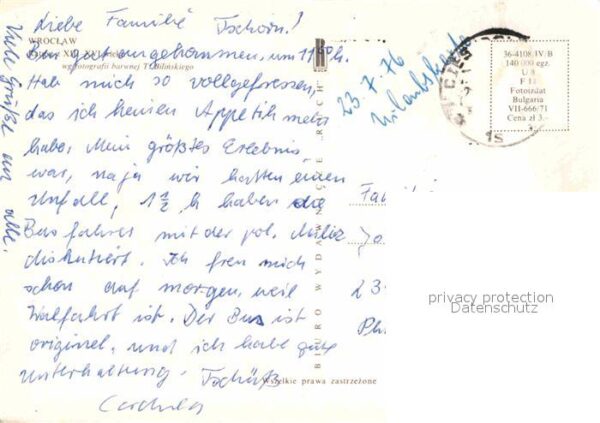 Liebe Familie
WROCŁAW
Bin gut angekommen, um 11
wg fotografii barwnej
Hab mich so vollgefressen,
das ich keinen Appetit mehr
habe. Mein größtes Erlebnis
war, naja wir hatten einen
Unfall, 1 1/2 h haben die
Busfahrer mit der pol. Miliz
diskutiert. Ich freu mich
schon auf morgen, weil
Walfahrt ist. Der Bus ist
originel, und ich habe gute
Unterhaltung. Tschüß
Viele Grüße an alle.
BIURO WYDAWNICZE RUCH
Wszelkie prawa zastrzeżone
23.7.76
Urlaubskarte
36-4108.IV/B
140 000 egz.
Fotoizdat
Bulgaria
VII-666/71
Cena zł 3.-
Fa
Jo
23
privacy protection
Datenschutz